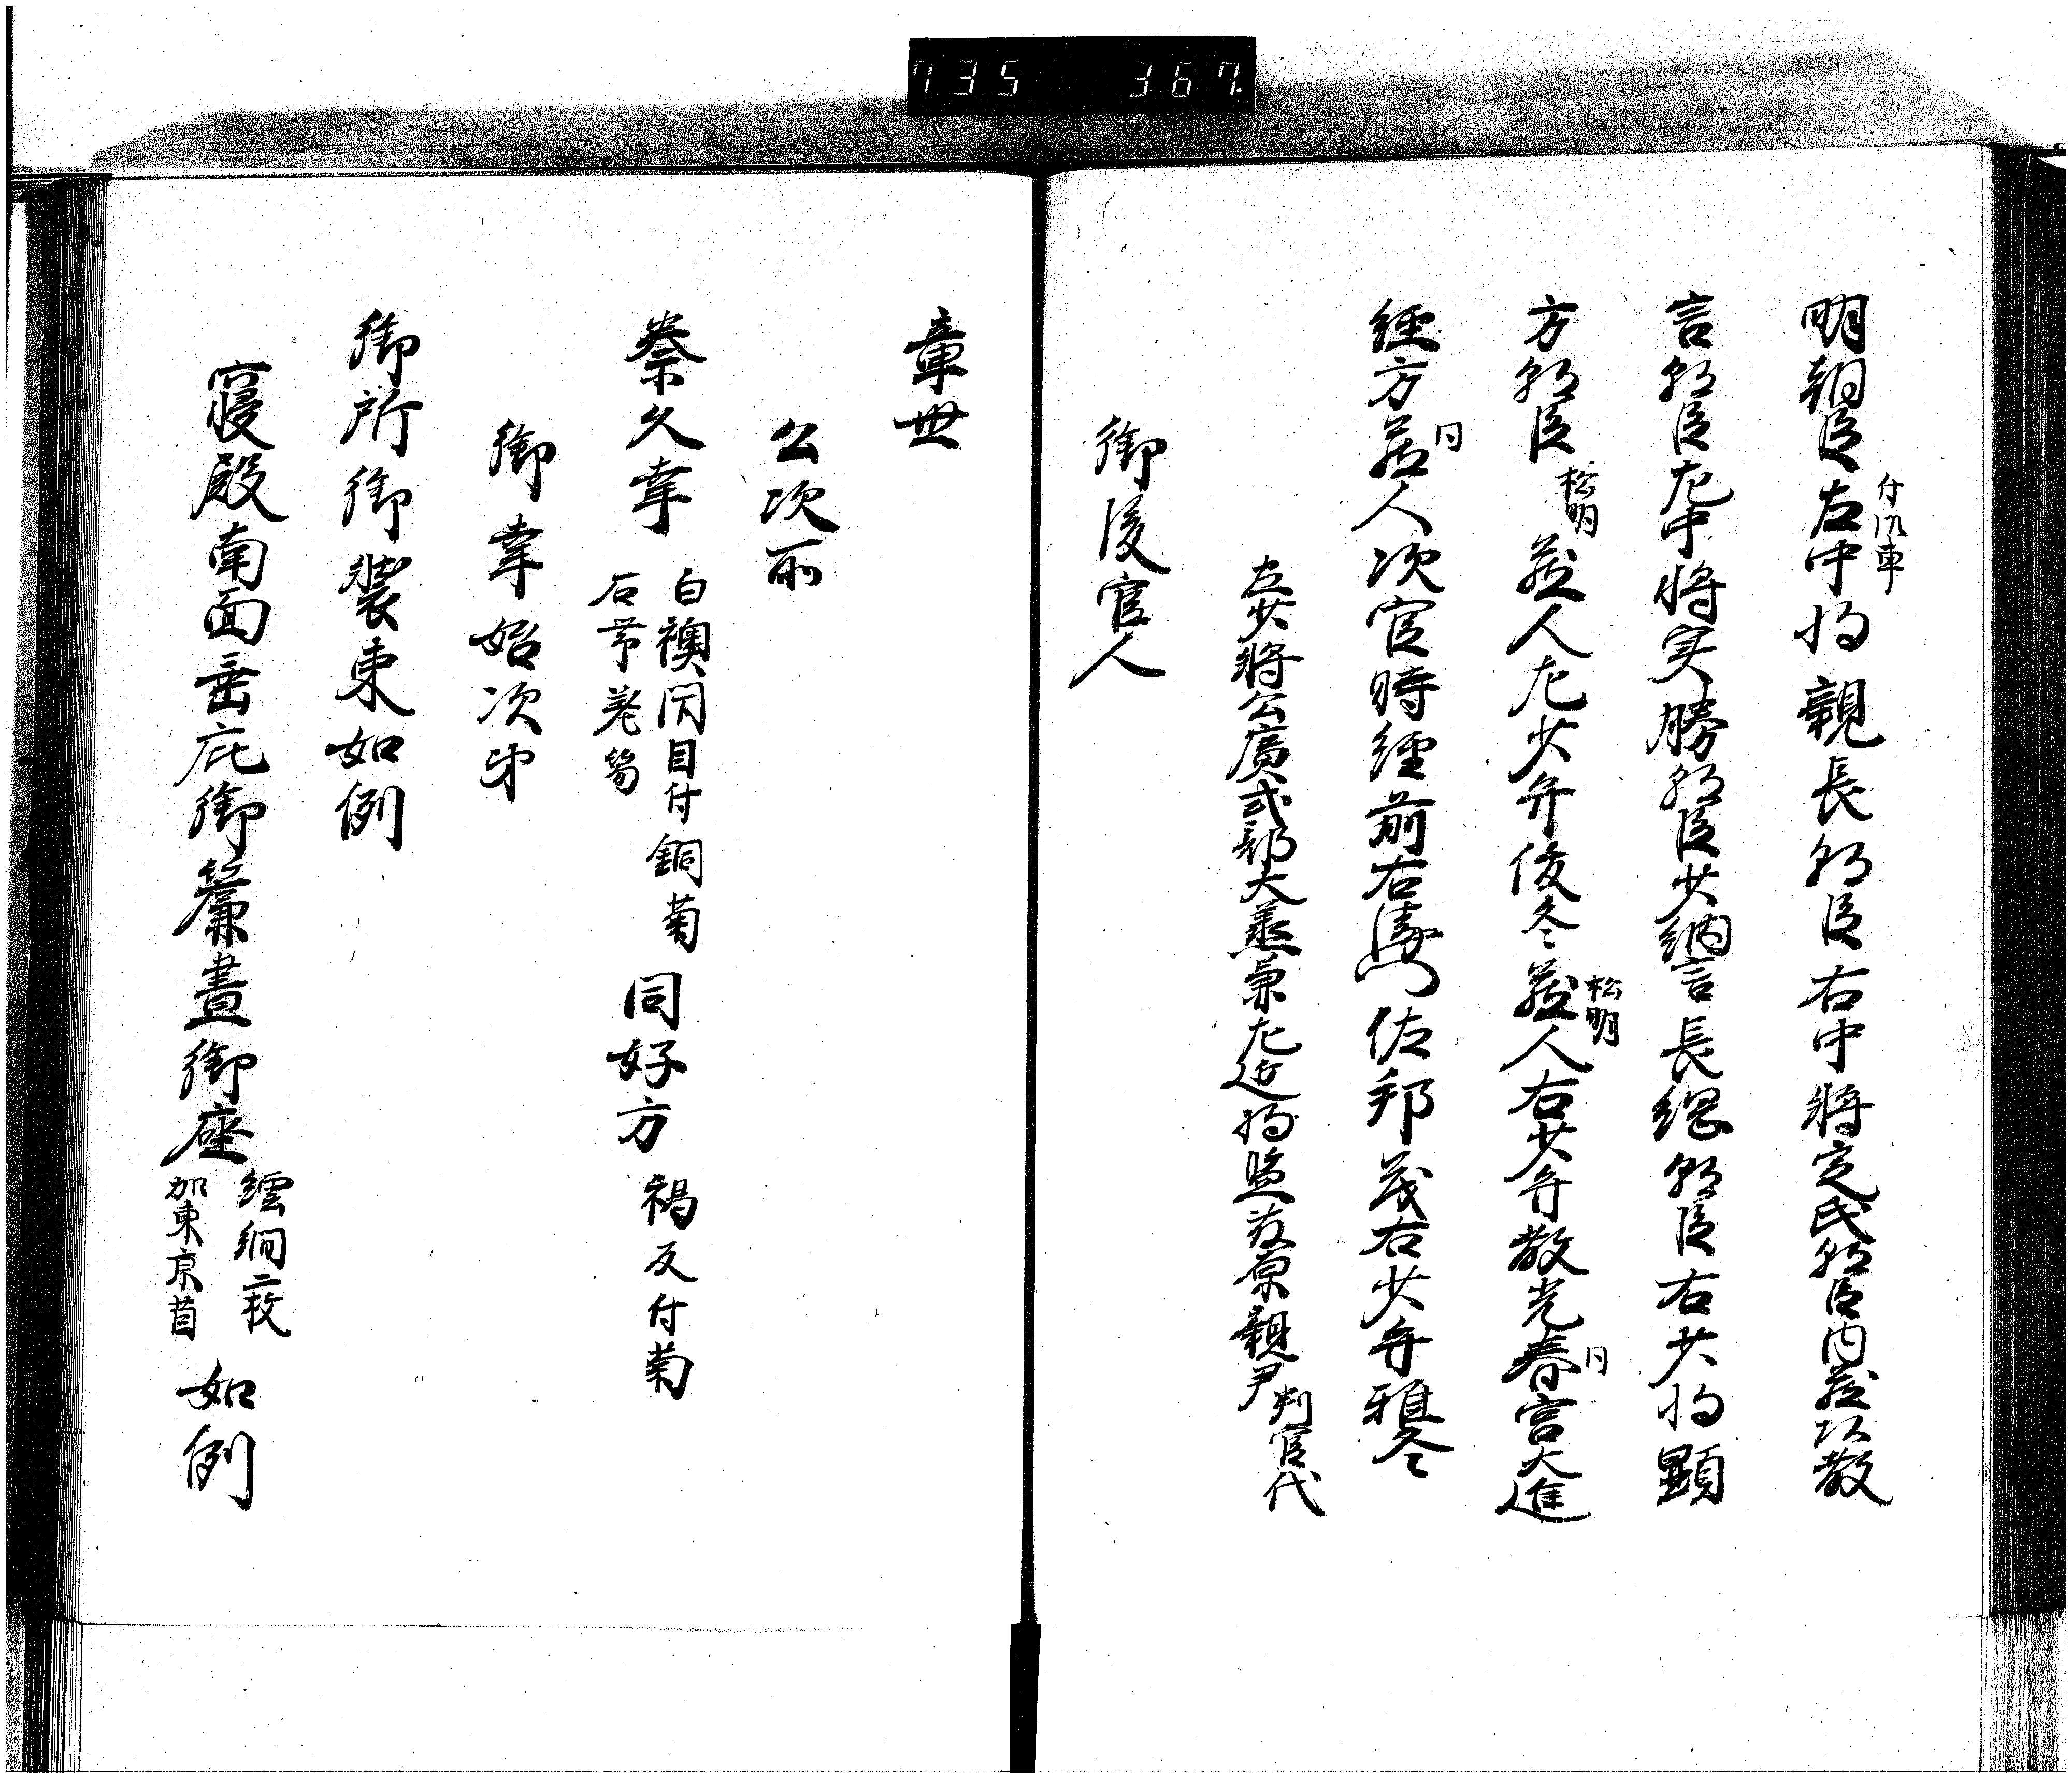 735 367
明朝臣左中将親長朝臣右中将定氏朝臣内蔵頭教
言朝臣左中将実勝朝臣少納言長綱朝臣右少将顕
方朝臣松明蔵人左少弁俊冬松明蔵人右少弁教光同春宮大進
経方同蔵人次官時経前右衛門佐邦茂右少弁雅冬
左少将公広式部大丞兼左近将監藤原親尹判官代
御後官人
章世
公次所
秦久幸白襖閇目付銅菊同好方褐反付菊
御幸始次第
御所御装束如例
寝殿南面垂庇御簾昼御座繧繝二枚加東京茵如例